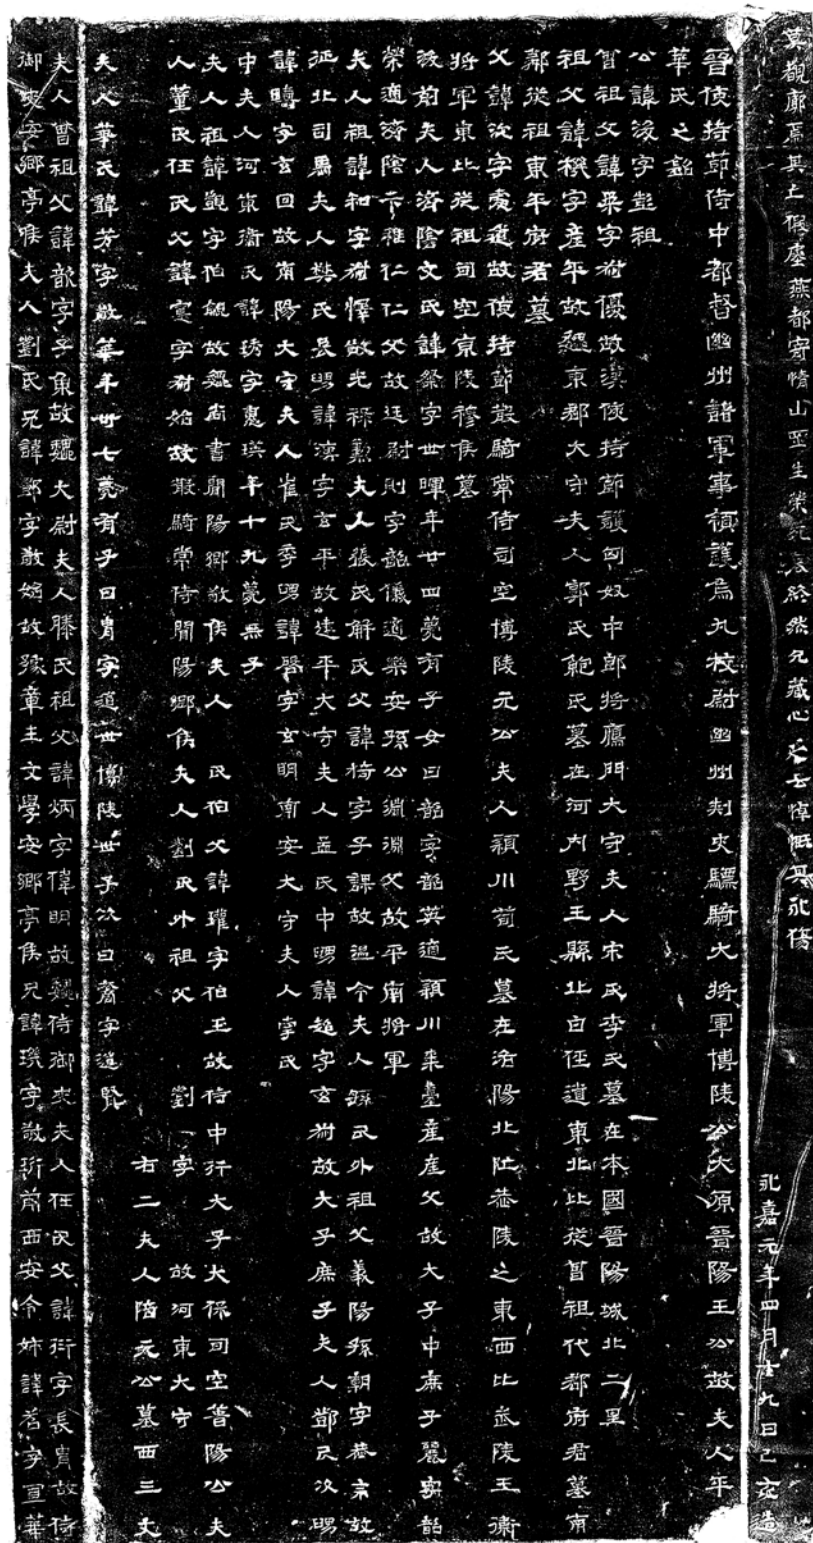 莫觀廓焉其土假塵燕都寄情山生榮死哀終然允藏心之云悼慨其永傷 永嘉元年四月十九日己亥造
晉使持節侍中都督幽州諸軍事領護烏丸校尉幽州刺史驃騎大將軍博陵公大原晉陽王公故夫人平
華氏之銘
公諱浚字彭祖
曾祖父諱柔字叔優故漢使持節護匈奴中郎將鴈門大守夫人宋氏李氏墓在本國晉陽城北二里
祖父諱機字產平故魏東郡大守夫人郭氏鮑氏墓在河內野王縣北白徑道東北比從曾祖代郡府君墓南
鄰從祖東平府君墓
父諱沈字處道故使持節散騎常侍司空博陵元公夫人潁川荀氏墓在洛陽北邙恭陵之東西比武陵王衛
將軍東比從祖司空京陵穆侯墓
浚前夫人濟陰文氏諱粲字世暉年廿四薨有子女曰韶字韶英適潁川棗臺產產父故大子中庶子麗字韶
榮適濟陰卞稚仁仁父故廷尉則字韶儀適樂安孫公淵淵父故平南將軍
夫人祖諱和字叔懌故光祿勳夫人張氏解氏父諱猗字子課故溫令夫人孫氏外祖父義陽孫朝字恭宗故
征北司馬夫人樊氏長舅諱演字玄平故建平大守夫人孟氏中舅諱超字玄叔故大子庶子夫人鄧氏次舅
諱疇字玄回故南陽大守夫人崔氏季舅諱啓字玄明南安大守夫人李氏
中夫人河東衛氏諱琇字惠瑛年十九薨無子
夫人祖諱覬字伯覦故魏尚書聞陽鄉敬侯夫人 氏伯父諱瓘字伯玉故侍中行大子大保司空菑陽公夫
人董氏任氏父諱寔字叔始故散騎常侍聞陽鄉侯夫人劉氏外祖父 劉 字 故河東大守
右二夫人陪元公墓西三丈
夫人華氏諱芳字敬華年卅七薨有子曰冑字道世博陵世子次曰裔字道賢
夫人曾祖父諱歆字子魚故魏大尉夫人滕氏祖父諱炳字偉明故魏侍御史夫人任氏父諱衍字長冑故侍
御史安鄉亭侯夫人劉氏兄諱酆字敬始故豫章王文學安鄉亭侯兄諱璣字敬珩前西安令姊諱苕字宣華